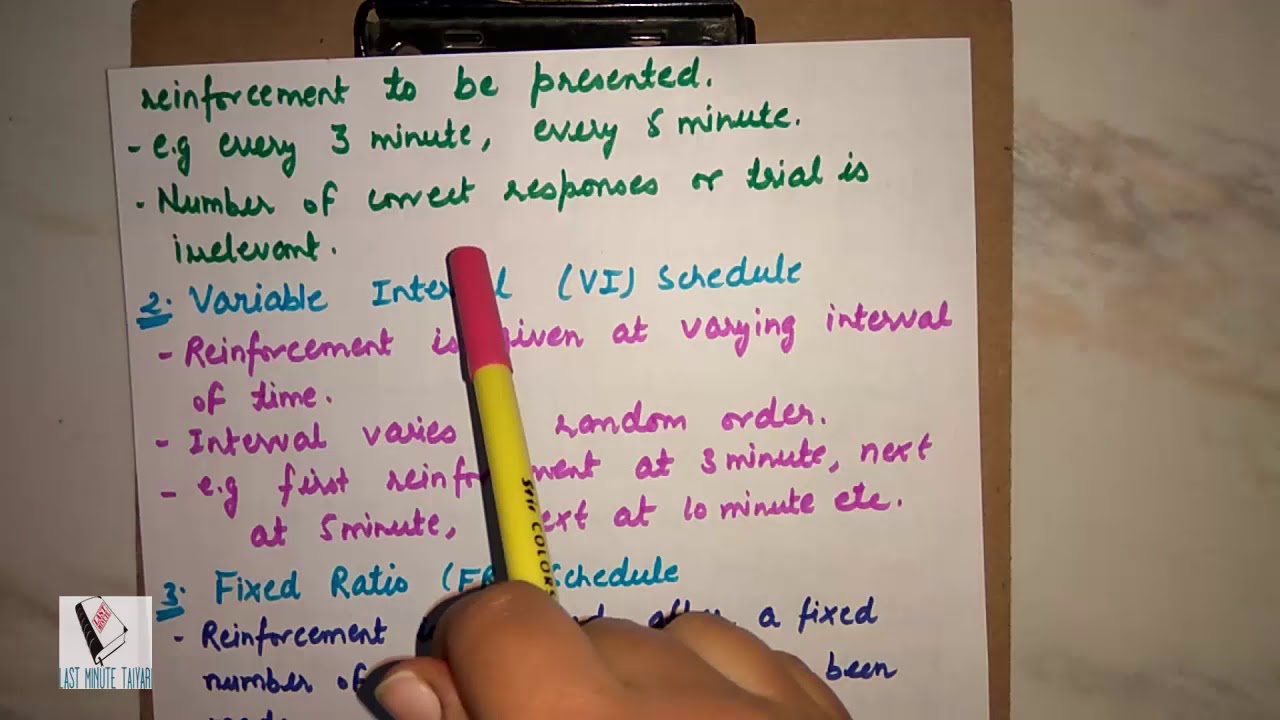 reinforcement to be presented.
- e.g every 3 minute, every 5 minute.
- Number of correct responses or trial is
irrelevant.
2. Variable (VI) Schedule
- Reinforcement is given at varying interval
of time.
- Interval varies random order.
- e.g first at 3 minute, next
at 5 minute, at 10 minute etc.
3. Fixed Ratio Schedule
- Reinforcement a fixed
number of been
LAST MINUTE
LAST MINUTE TAIYARI